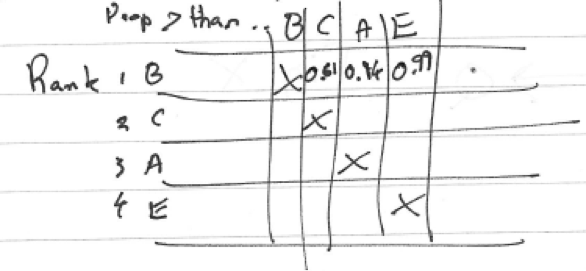 Prop > than .. B C A E
Rank 1 B X 0.81 0.96 0.99 .
2 C X
3 A X
4 E X